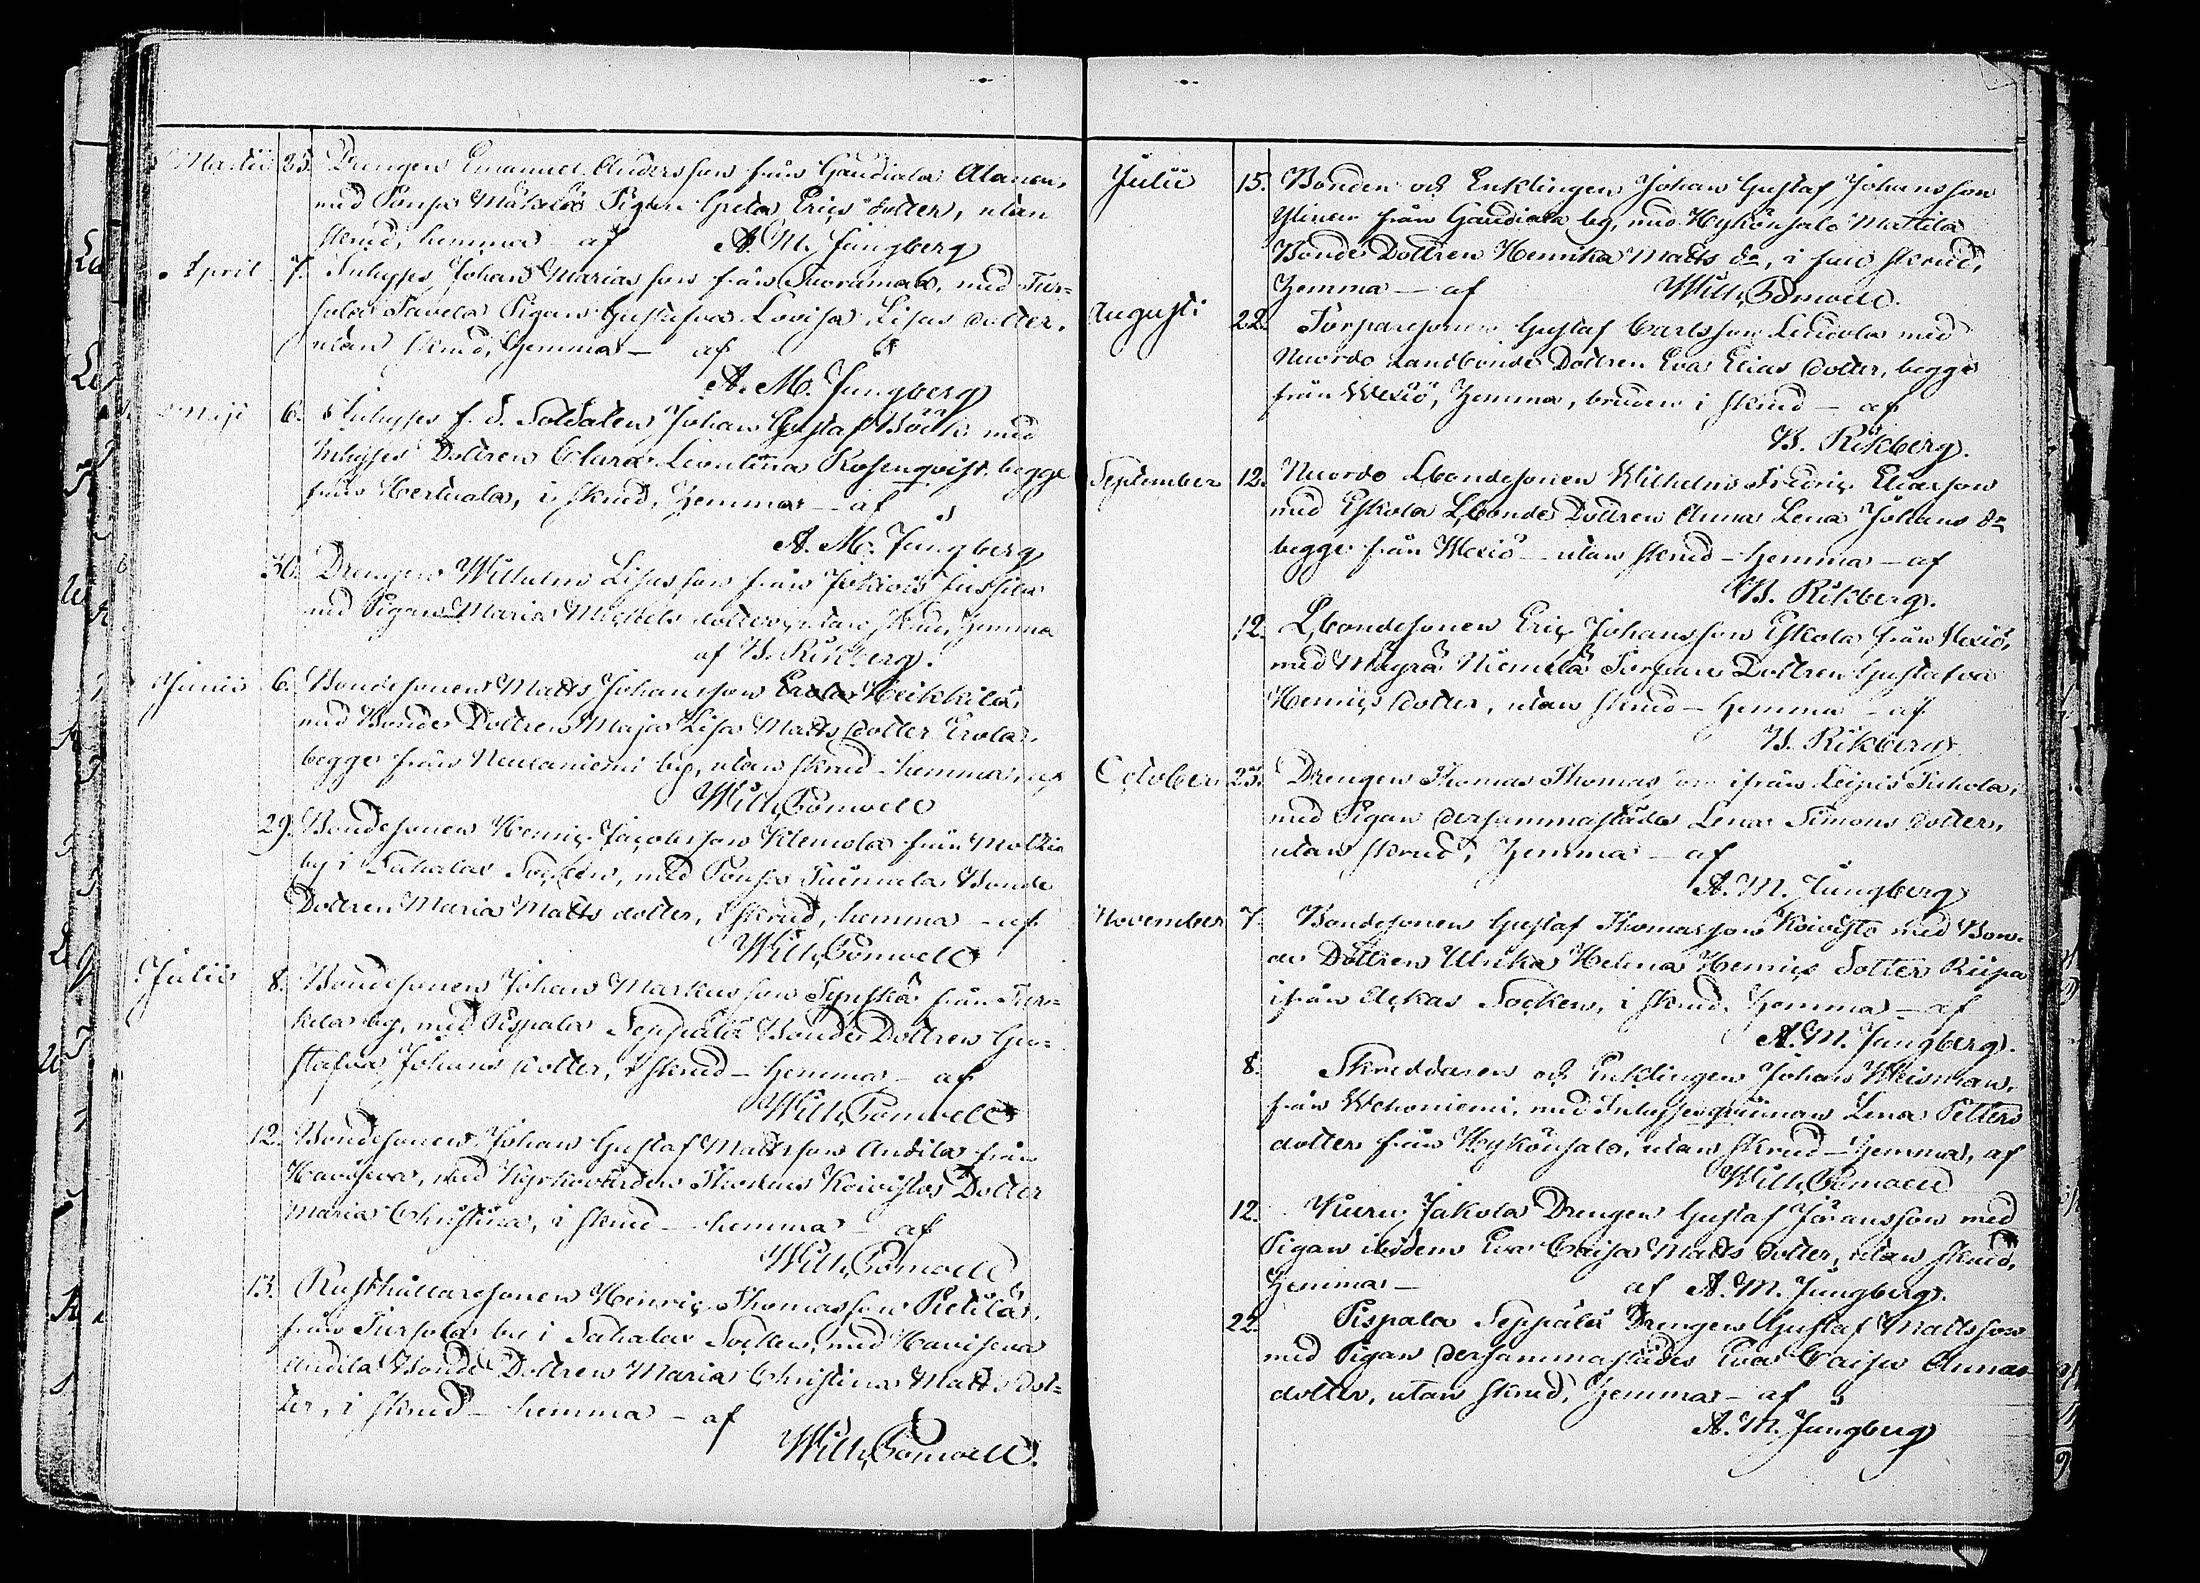 Martii 25. Drengen Emanuel Andersson från Gaudiala Alanen,
med Ponsa Mäkelä Pigan Greta Erics dotter, utan
skrud, hemma af A. M. Jungberg
April 7. Inhyses Johan Mariasson från Tuoramaa, med Tur-
sola Tavela Pigan Gustafva Lovisa Lisas dotter,
utan skrud, hemma — af
A. M. Jungberg
Maji 6. Inhyses f. d. Soldaten Johan Gustaf Böök med
Inhyses Dottren Clara Leontina Rosenqvist, begge
från Hertuala, i skrud, hemma — af
A. M. Jungberg
30. Drengen Wilhelm Lisasson från Jokiois Jussila
med Pigan Maria Michels dotter, utan skrud, hemma
af B. Rikberg.
Junii 6. Bondesonen Matts Johansson Heikkilä
med Bonde Dottren Maja Lisa Matts dotter Erola,
begge från Neulaniemi by, utan skrud - hemma, af
Wilh. Pomoell
29. Bondesonen Henric Jacobsson Klemola från Moltia
by i Sahalax Socken, med Ponsa Tuimala Bonde
Dottren Maria Matts dotter, i skrud, hemma - af
Wilh. Pomoell
Julii 8. Bondesonen Johan Markusson Synskä från Tur-
kela by, med Pispala Seppälä Bonde Dottren Gu-
stafva Johans dotter, i skrud - hemma - af
Wilh. Pomoell
12. Bondesonen Johan Gustaf Mattsson Andila från
Havisevа, med Kyrkovärden Thomas Koivistos Dotter
Maria Christina, i skrud - hemma - af
Wilh. Pomoell
13. Rusthållaresonen Henric Thomasson Pietilä,
från Tursola by i Sahalax Socken, med Haviseva
Andila Bonde Dottren Maria Christina Matts dot-
ter, i skrud - hemma - af
Wilh. Pomoell.
Julii 15. Bonden och Enklingen Johan Gustaf Johansson
Ylinen från Gaudiala by, med Hykönsalo Mattila
Bonde Dottren Henrika Matts dr, i full skrud,
hemma — af Wilh. Pomoell.
Augusti 22. Torparesonen Gustaf Carlsson Leudola med
Nuordo Landbonde Dottren Eva Elias dotter, begge
från Wexiö, hemma, bruden i skrud — af
B. Rikberg.
September 12. Nuordo Lbondesonen Wilhelm Fredric Eliasson
med Eskola Lbonde Dottren Anna Lena Johans dr
begge från Wexiö - utan skrud - hemma - af
B. Rikberg.
12. Lbondesonen Eric Johansson Eskola från Wexiö,
med Mäyrä Niemelä Torpare Dottren Gustafva
Henrics dotter, utan skrud - hemma - af
B. Rikberg
October 25. Drengen Thomas Thomasson ifrån Leipis Tuhola,
med Pigan dersammastädes Lena Simons dotter,
utan skrud, hemma - af
A. M. Jungberg
November 7. Bondesonen Gustaf Thomasson Koivisto med Bon-
de Dottren Ulrika Helena Henrics dotter Riipa
ifrån Eckas Socken, i skrud, hemma - af
A. M. Jungberg.
8. Skreddaren och Enklingen Johan Weisman,
från Wehoniemi, med Inhysesqvinnan Lena Petters
dotter från Hykönsalo, utan skrud - hemma, af
Wilh. Pomoell
12. Kuru Jakola Drengen Gustaf Göransson med
Pigan ibidem Eva Caisa Matts dotter, utan skrud,
hemma — af A. M. Jungberg.
22. Pispala Seppälä Drengen Gustaf Mattsson
med Pigan dersammastädes Eva Caisa Annas
dotter, utan skrud, hemma - af
A. M. Jungberg